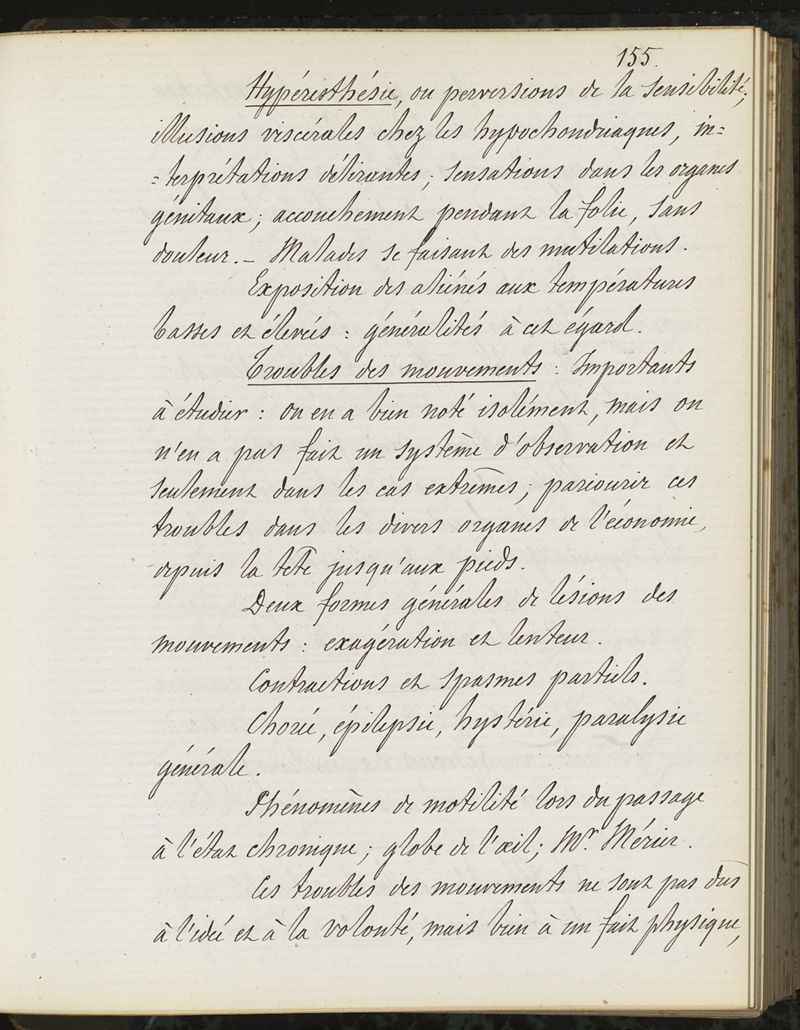 155.
Hypéresthésie, ou perversions de la sensibilité;
illusions viscérales chez les hypochondriaques, in=
=terprétations délirantes; sensations dans les organes
génitaux; accouchement pendant la folie, sans
douleur. – Malades se faisant des mutilations.
Exposition des aliénés aux températures
basses et élevées : généralités à cet égard.
Troubles des mouvements : Importants
à étudier : on en a bien noté isolément, mais on
n'en a pas fait un système d'observation et
seulement dans les cas extrêmes; parcourir ces
troubles dans les divers organes de l'économie,
depuis la tête jusqu'aux pieds.
Deux formes générales de lésions des
mouvements : exagération et lenteur.
Contractions et spasmes partiels.
Chorée, épilepsie, hystérie, paralysie
générale.
Phénomènes de motilité lors du passage
à l'état chronique; globe de l'œil; Mr.
Ces troubles des mouvements ne sont pas dûs
à l'idée et à la volonté, mais bien à un fait physique,